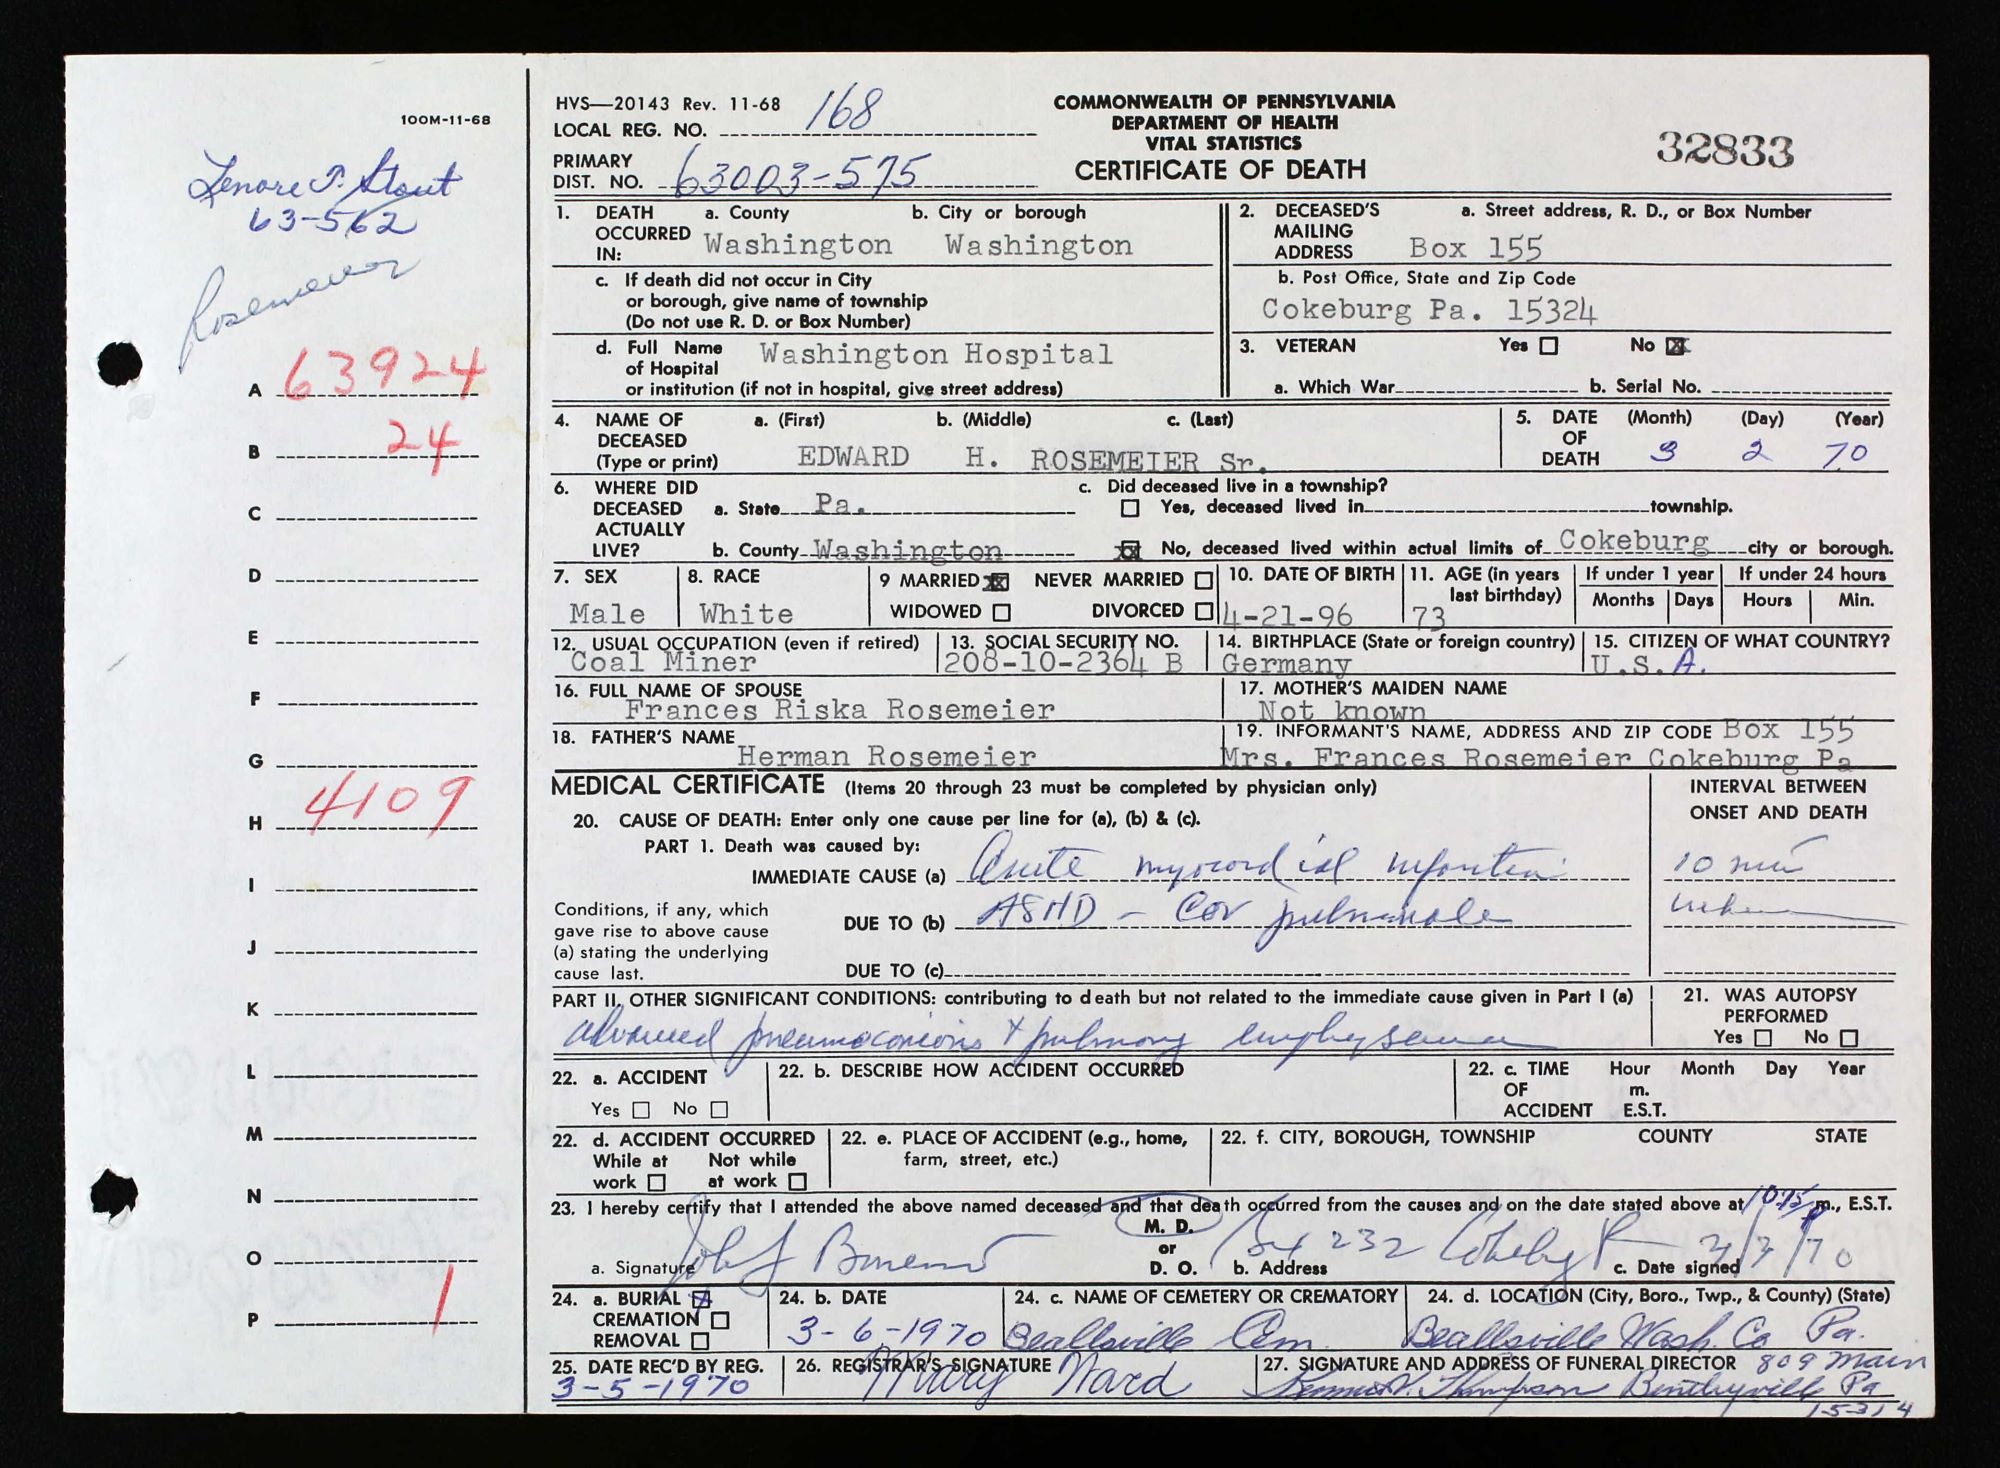 100M-11-68
Lenore P. Stout
63-562
A 63924
B 24
C
D
E
F
G
H 4109
I
J
K
L
M
N
O
P 1
HVS—20143 Rev. 11-68
LOCAL REG. NO. 168
PRIMARY
DIST. NO. 63003-575
COMMONWEALTH OF PENNSYLVANIA
DEPARTMENT OF HEALTH
VITAL STATISTICS
CERTIFICATE OF DEATH
32833
1. DEATH OCCURRED IN: a. County b. City or borough
Washington Washington
c. If death did not occur in City
or borough, give name of township
(Do not use R. D. or Box Number)
d. Full Name Washington Hospital
of Hospital
or institution (if not in hospital, give street address)
2. DECEASED'S MAILING ADDRESS a. Street address, R. D., or Box Number
Box 155
b. Post Office, State and Zip Code
Cokeburg Pa. 15324
3. VETERAN Yes No X
a. Which War b. Serial No.
4. NAME OF DECEASED (Type or print) a. (First) b. (Middle) c. (Last)
EDWARD H. ROSEMEIER Sr.
5. DATE OF DEATH (Month) (Day) (Year)
3 2 70
6. WHERE DID DECEASED ACTUALLY LIVE?
a. State Pa.
b. County Washington
c. Did deceased live in a township?
Yes, deceased lived in township.
XX No, deceased lived within actual limits of Cokeburg city or borough.
7. SEX
Male
8. RACE
White
9 MARRIED XX NEVER MARRIED
WIDOWED DIVORCED
10. DATE OF BIRTH
4-21-96
11. AGE (in years last birthday)
73
If under 1 year If under 24 hours
Months Days Hours Min.
12. USUAL OCCUPATION (even if retired)
Coal Miner
13. SOCIAL SECURITY NO.
208-10-2364 B
14. BIRTHPLACE (State or foreign country)
Germany
15. CITIZEN OF WHAT COUNTRY?
U.S.A.
16. FULL NAME OF SPOUSE
Frances Riska Rosemeier
17. MOTHER'S MAIDEN NAME
Not known
18. FATHER'S NAME
Herman Rosemeier
19. INFORMANT'S NAME, ADDRESS AND ZIP CODE Box 155
Mrs. Frances Rosemeier Cokeburg Pa
MEDICAL CERTIFICATE (Items 20 through 23 must be completed by physician only)
INTERVAL BETWEEN
ONSET AND DEATH
20. CAUSE OF DEATH: Enter only one cause per line for (a), (b) & (c).
PART 1. Death was caused by:
IMMEDIATE CAUSE (a) Acute myocardial infarction 10 min
Conditions, if any, which
gave rise to above cause
(a) stating the underlying
cause last.
DUE TO (b) ASHD - Cor pulmonale
DUE TO (c)
PART II. OTHER SIGNIFICANT CONDITIONS: contributing to death but not related to the immediate cause given in Part I (a)
advanced pneumoconiosis + pulmonary emphysema
21. WAS AUTOPSY
PERFORMED
Yes No
22. a. ACCIDENT
Yes No
22. b. DESCRIBE HOW ACCIDENT OCCURRED
22. c. TIME OF ACCIDENT Hour Month Day Year
m.
E.S.T.
22. d. ACCIDENT OCCURRED
While at work Not while at work
22. e. PLACE OF ACCIDENT (e.g., home,
farm, street, etc.)
22. f. CITY, BOROUGH, TOWNSHIP COUNTY STATE
23. I hereby certify that I attended the above named deceased and that death occurred from the causes and on the date stated above at m., E.S.T.
a. Signature M. D. or D. O. b. Address Box 232 c. Date signed 3/3/70
24. a. BURIAL X
CREMATION
REMOVAL
24. b. DATE
3-6-1970
24. c. NAME OF CEMETERY OR CREMATORY
Beallsville Cem.
24. d. LOCATION (City, Boro., Twp., & County) (State)
Beallsville Wash. Co Pa.
25. DATE REC'D BY REG.
3-5-1970
26. REGISTRAR'S SIGNATURE
Mary Ward
27. SIGNATURE AND ADDRESS OF FUNERAL DIRECTOR 809 Main
Thompson Bentleyville Pa
15314